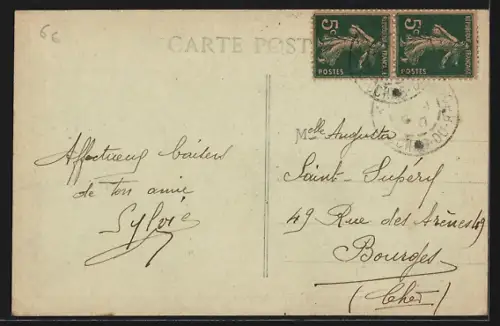 6c
CARTE POST
5c 5c
REPUBLIQUE FRANÇAISE REPUBLIQUE FRANÇAISE
POSTES POSTES
Affectueux baisers
de ton amie
Sylvie
Melle Augusta
Saint-Supéry
49 Rue des Arènes 49
Bourges
(Cher)